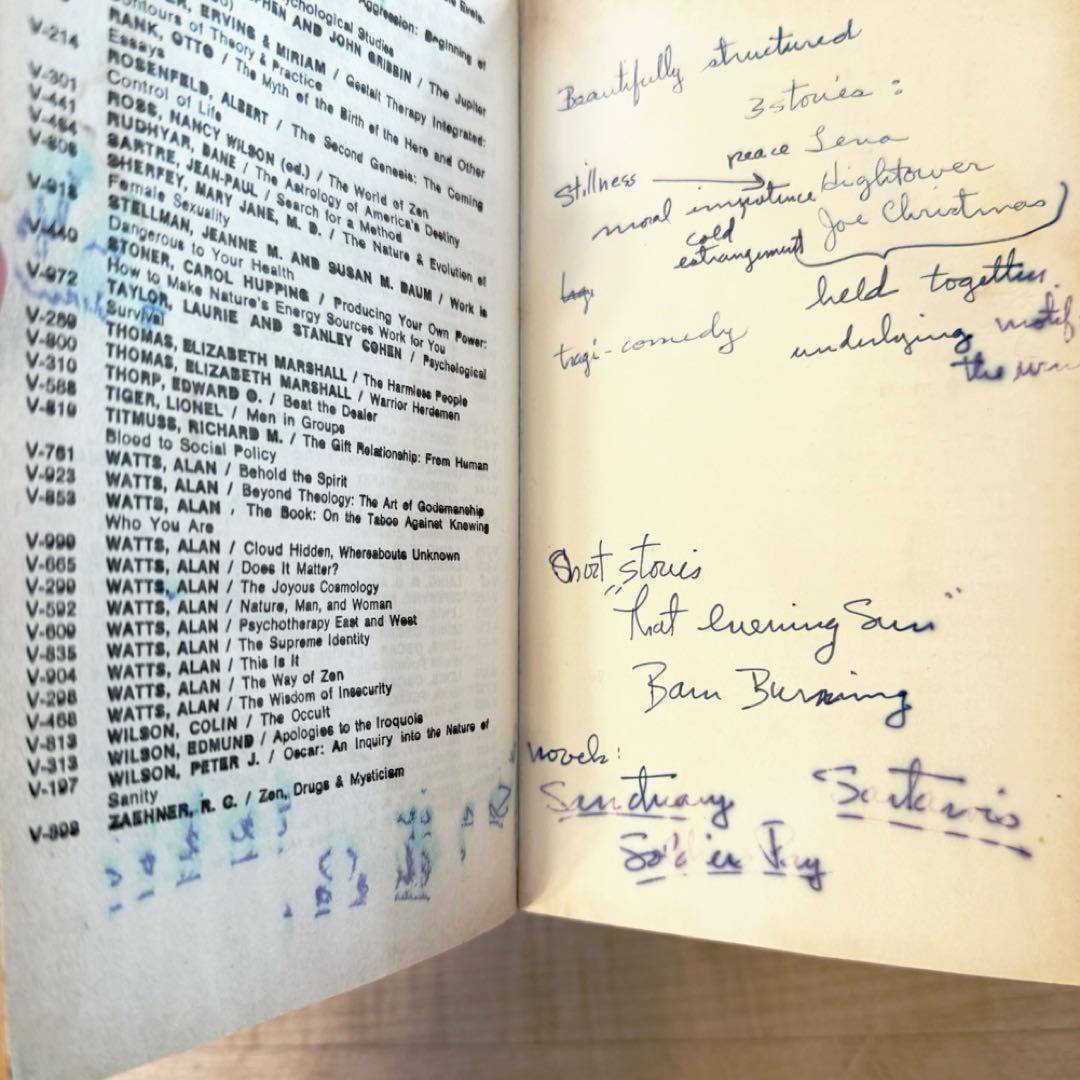 Aggression: Beginning of
Psychological Studies
AND JOHN GRIBBIN / The Jupiter
ERVING & MIRIAM / Gestalt Therapy Integrated:
Contours of Theory & Practice
V-214 RANK, OTTO / The Myth of the Birth of the Hero and Other
Essays
V-301 ROSENFELD, ALBERT / The Second Genesis: The Coming
Control of Life
V-441 ROSS, NANCY WILSON (ed.) / The World of Zen
V-464 RUDHYAR, DANE / The Astrology of America's Destiny
SARTRE, JEAN-PAUL / Search for a Method
SHERFEY, MARY JANE, M. D. / The Nature & Evolution of
Female Sexuality
V-918 STELLMAN, JEANNE M. AND SUSAN M. DAUM / Work is
Dangerous to Your Health
V-440 STONER, CAROL HUPPING / Producing Your Own Power:
How to Make Nature's Energy Sources Work for You
V-972 TAYLOR, LAURIE AND STANLEY COHEN / Psychological
Survival
V-289 THOMAS, ELIZABETH MARSHALL / The Harmless People
V-800 THOMAS, ELIZABETH MARSHALL / Warrior Herdsmen
V-310 THORP, EDWARD O. / Beat the Dealer
V-588 TIGER, LIONEL / Men in Groups
V-810 TITMUSS, RICHARD M. / The Gift Relationship: From Human
Blood to Social Policy
V-761 WATTS, ALAN / Behold the Spirit
V-923 WATTS, ALAN / Beyond Theology: The Art of Godsmanship
V-853 WATTS, ALAN , The Book: On the Taboo Against Knowing
Who You Are
V-999 WATTS, ALAN / Cloud Hidden, Whereabouts Unknown
V-665 WATTS, ALAN / Does It Matter?
V-299 WATTS, ALAN / The Joyous Cosmology
V-592 WATTS, ALAN / Nature, Man, and Woman
V-609 WATTS, ALAN / Psychotherapy East and West
V-835 WATTS, ALAN / The Supreme Identity
V-904 WATTS, ALAN / This Is It
V-298 WATTS, ALAN / The Way of Zen
V-468 WATTS, ALAN / The Wisdom of Insecurity
V-813 WILSON, COLIN / The Occult
V-313 WILSON, EDMUND / Apologies to the Iroquois
V-197 WILSON, PETER J. / Oscar: An Inquiry into the Nature of
Sanity
V-898 ZAEHNER, R. C. / Zen, Drugs & Mysticism
Beautifully structured
3 stories :
peace Lena
Stillness
moral impotence Hightower
cold
estrangement Joe Christmas
held together
tragi-comedy underlying motif
the
Short stories
"That Evening Sun"
Barn Burning
novels:
Sanctuary Sartoris
Soldier Pay